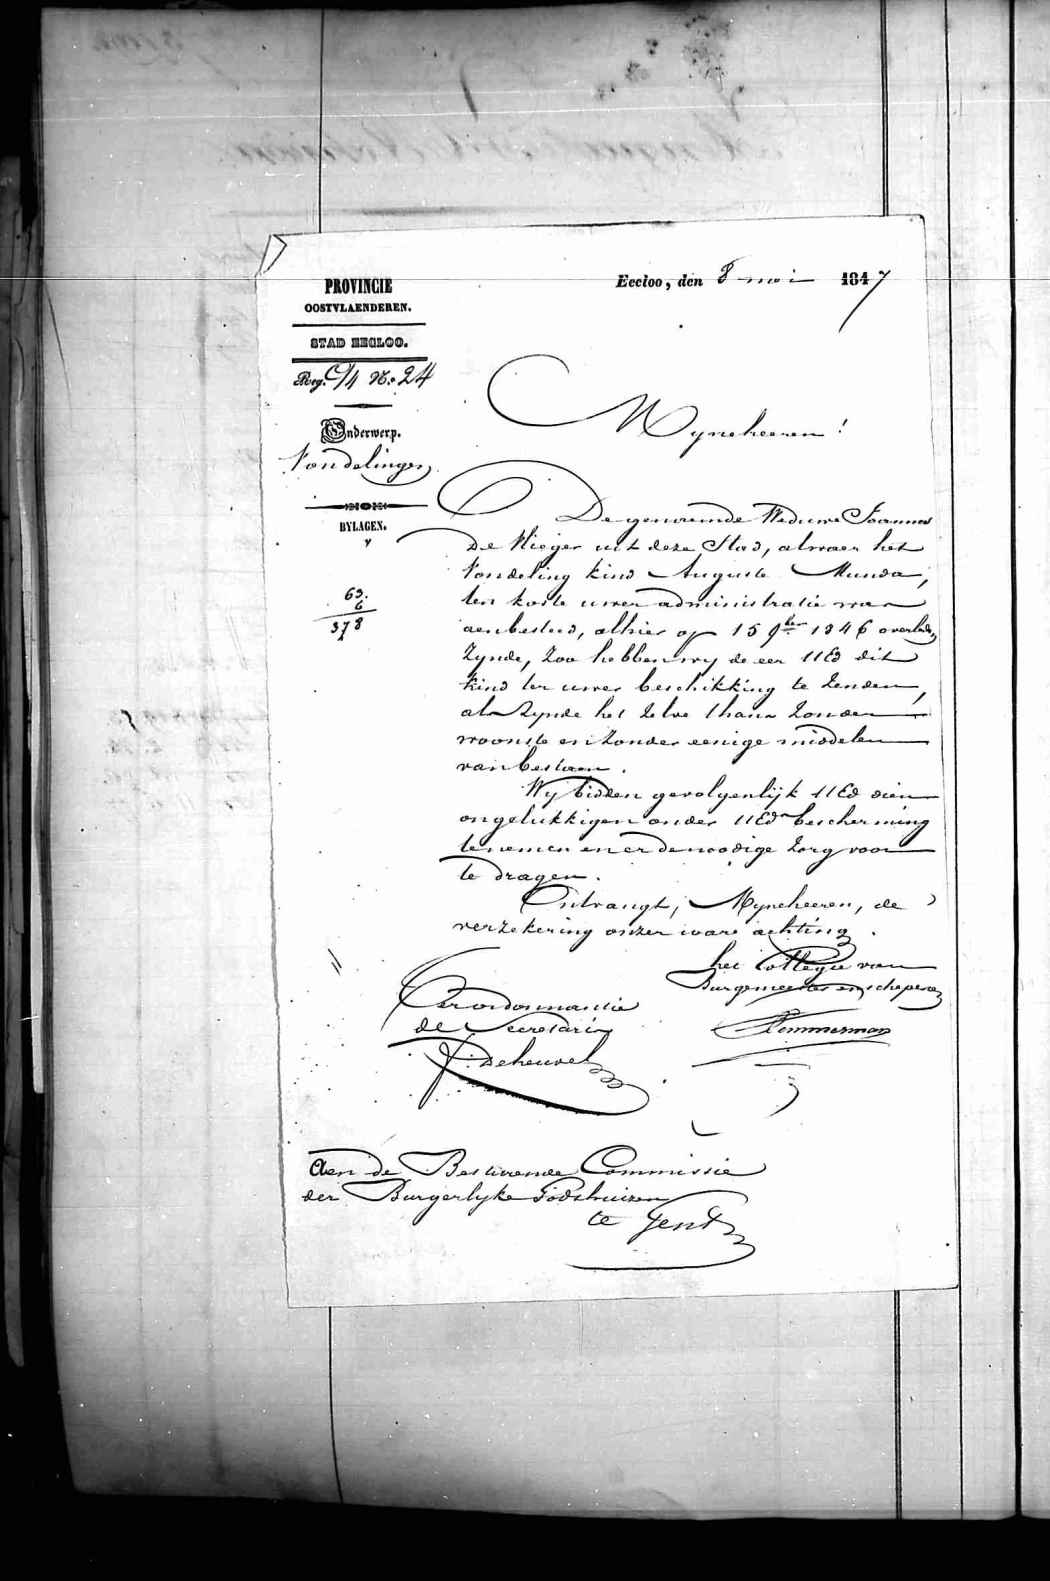 PROVINCIE
OOSTVLAENDEREN.
STAD EECLOO.
Reg. C/4 No. 24
Onderwerp.
Vondelingen
BYLAGEN.
63.
6
378
Eecloo, den 8 mei 1847
Mynheeren!
De genoemde Weduwe Joannes
De Vlieger uit deze Stad, alwaer het
Vondeling kind Auguste Munda,
ten koste uwer administratie was
aenbesteed, alhier op 15 9ber 1846 overleden
Zynde, Zoo hebben wy de eer UEd dit
Kind ter uwer beschikking te Zenden,
als Zynde het Zelve thans Zonder
woonste en Zonder eenige middelen
van bestaen.
Wij bidden gevolgenlijk UEd dien
ongelukkigen onder UEds bescherming
te nemen en er de noodige Zorg voor
te dragen.
Ontvangt, Mynheeren, de
verzekering onzer ware achting.
het Collegie van
Burgemeester en schepenen
Per ordonnantie
de Secretaris
Deheuvel
Aen de Besturende Commissie
der Burgerlyke Godshuizen
te Gent